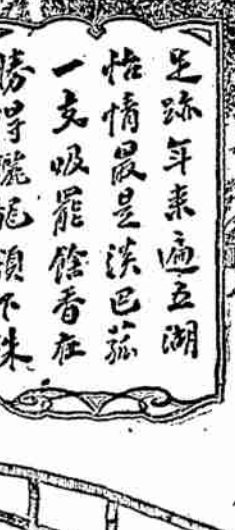 足跡年来遍五湖
怡情最是淡巴菰
一支吸罷餘香在
勝得驪龍頷下珠